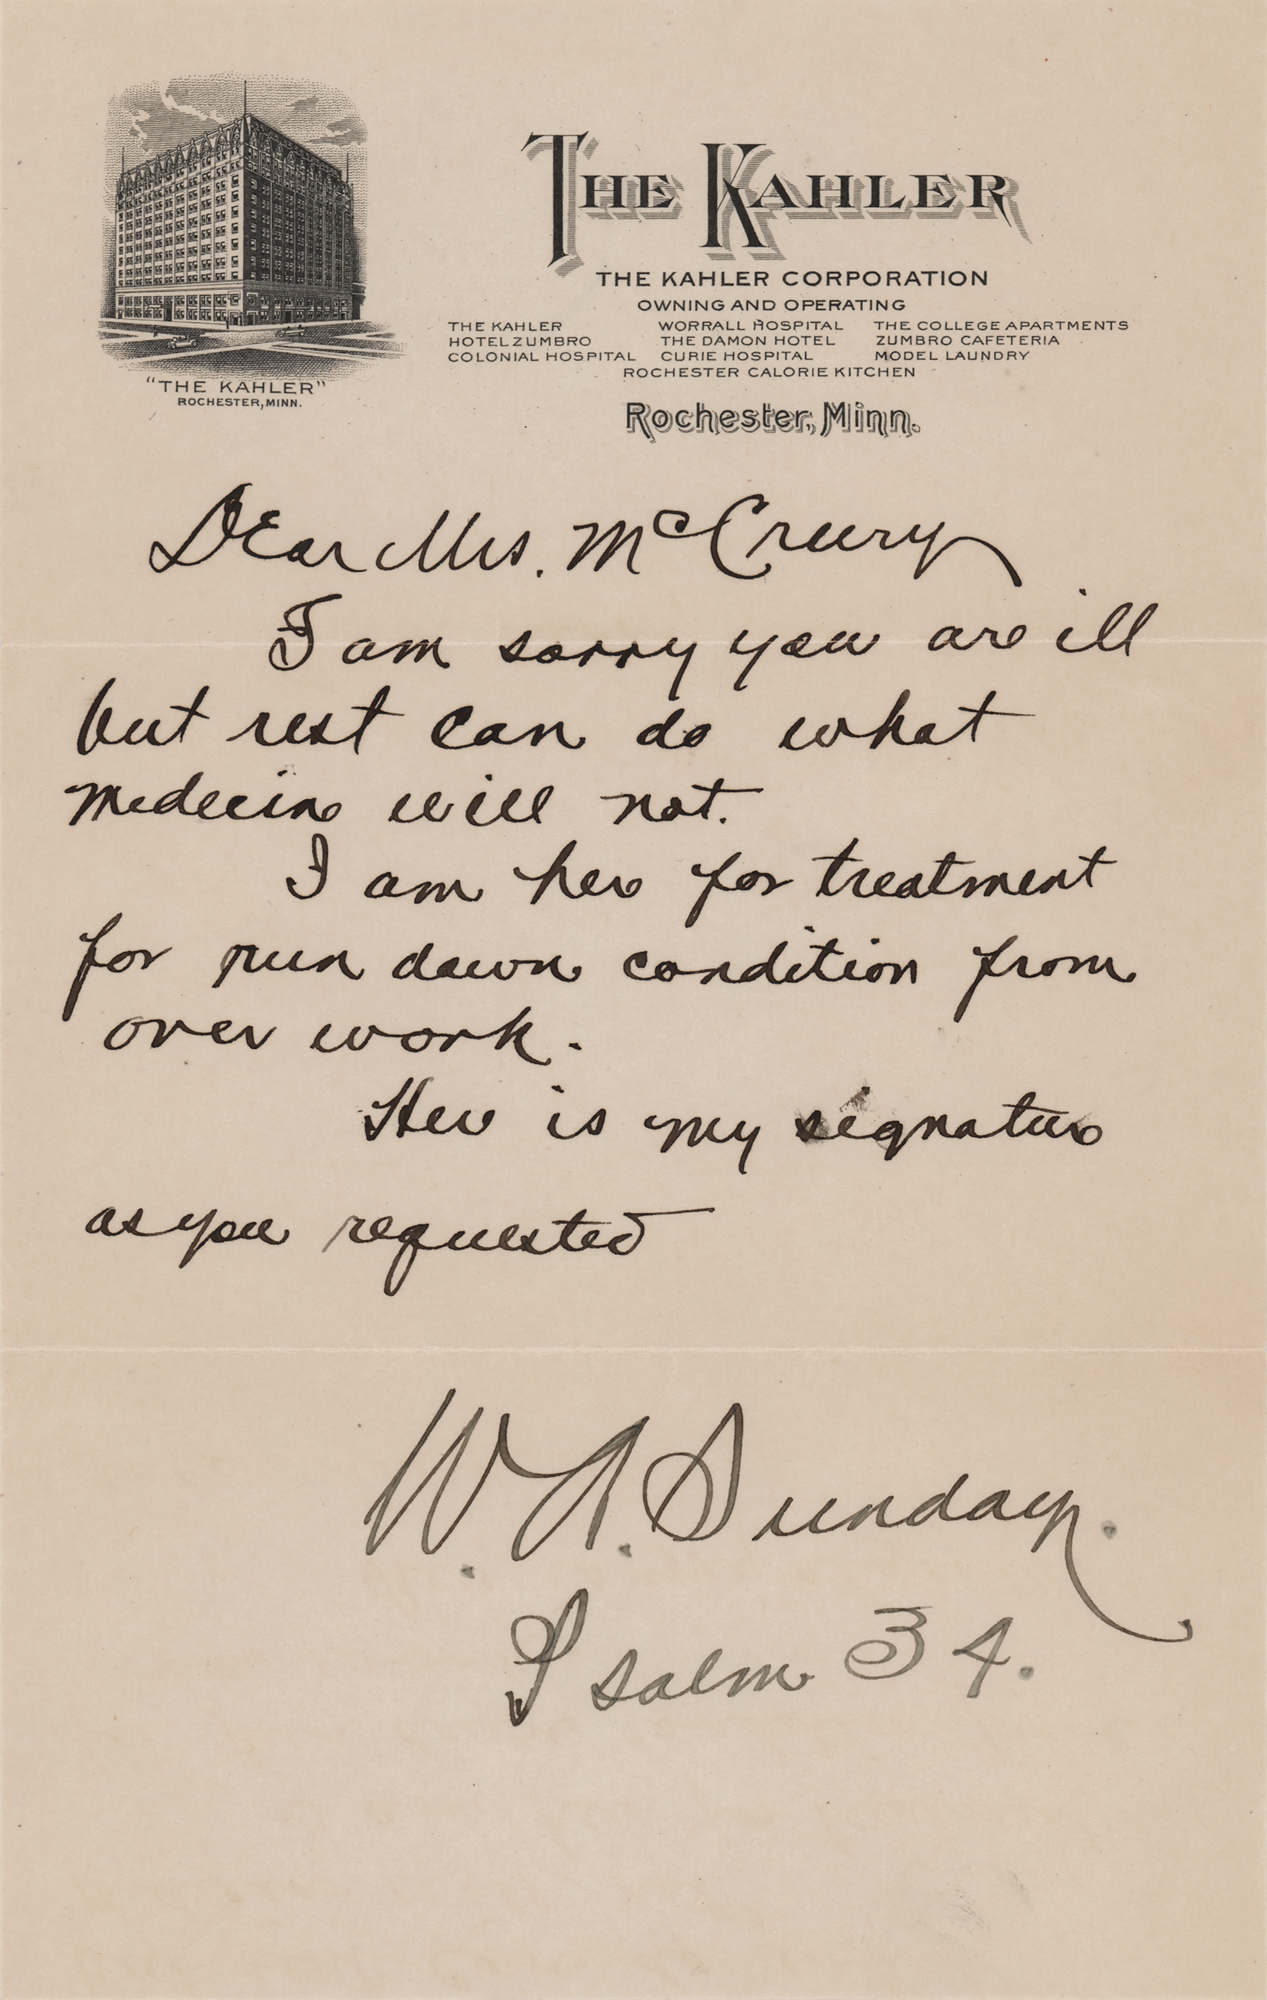 THE KAHLER
THE KAHLER CORPORATION
OWNING AND OPERATING
THE KAHLER WORRALL HOSPITAL THE COLLEGE APARTMENTS
HOTEL ZUMBRO THE DAMON HOTEL ZUMBRO CAFETERIA
COLONIAL HOSPITAL CURIE HOSPITAL MODEL LAUNDRY
ROCHESTER CALORIE KITCHEN
"THE KAHLER"
ROCHESTER, MINN.
Rochester, Minn.
Dear Mrs. McCreery
I am sorry you are ill
but rest can do what
medecine will not.
I am here for treatment
for run down condition from
over work.
Here is my signature
as you requested
W. A. Sunday.
Psalm 34.